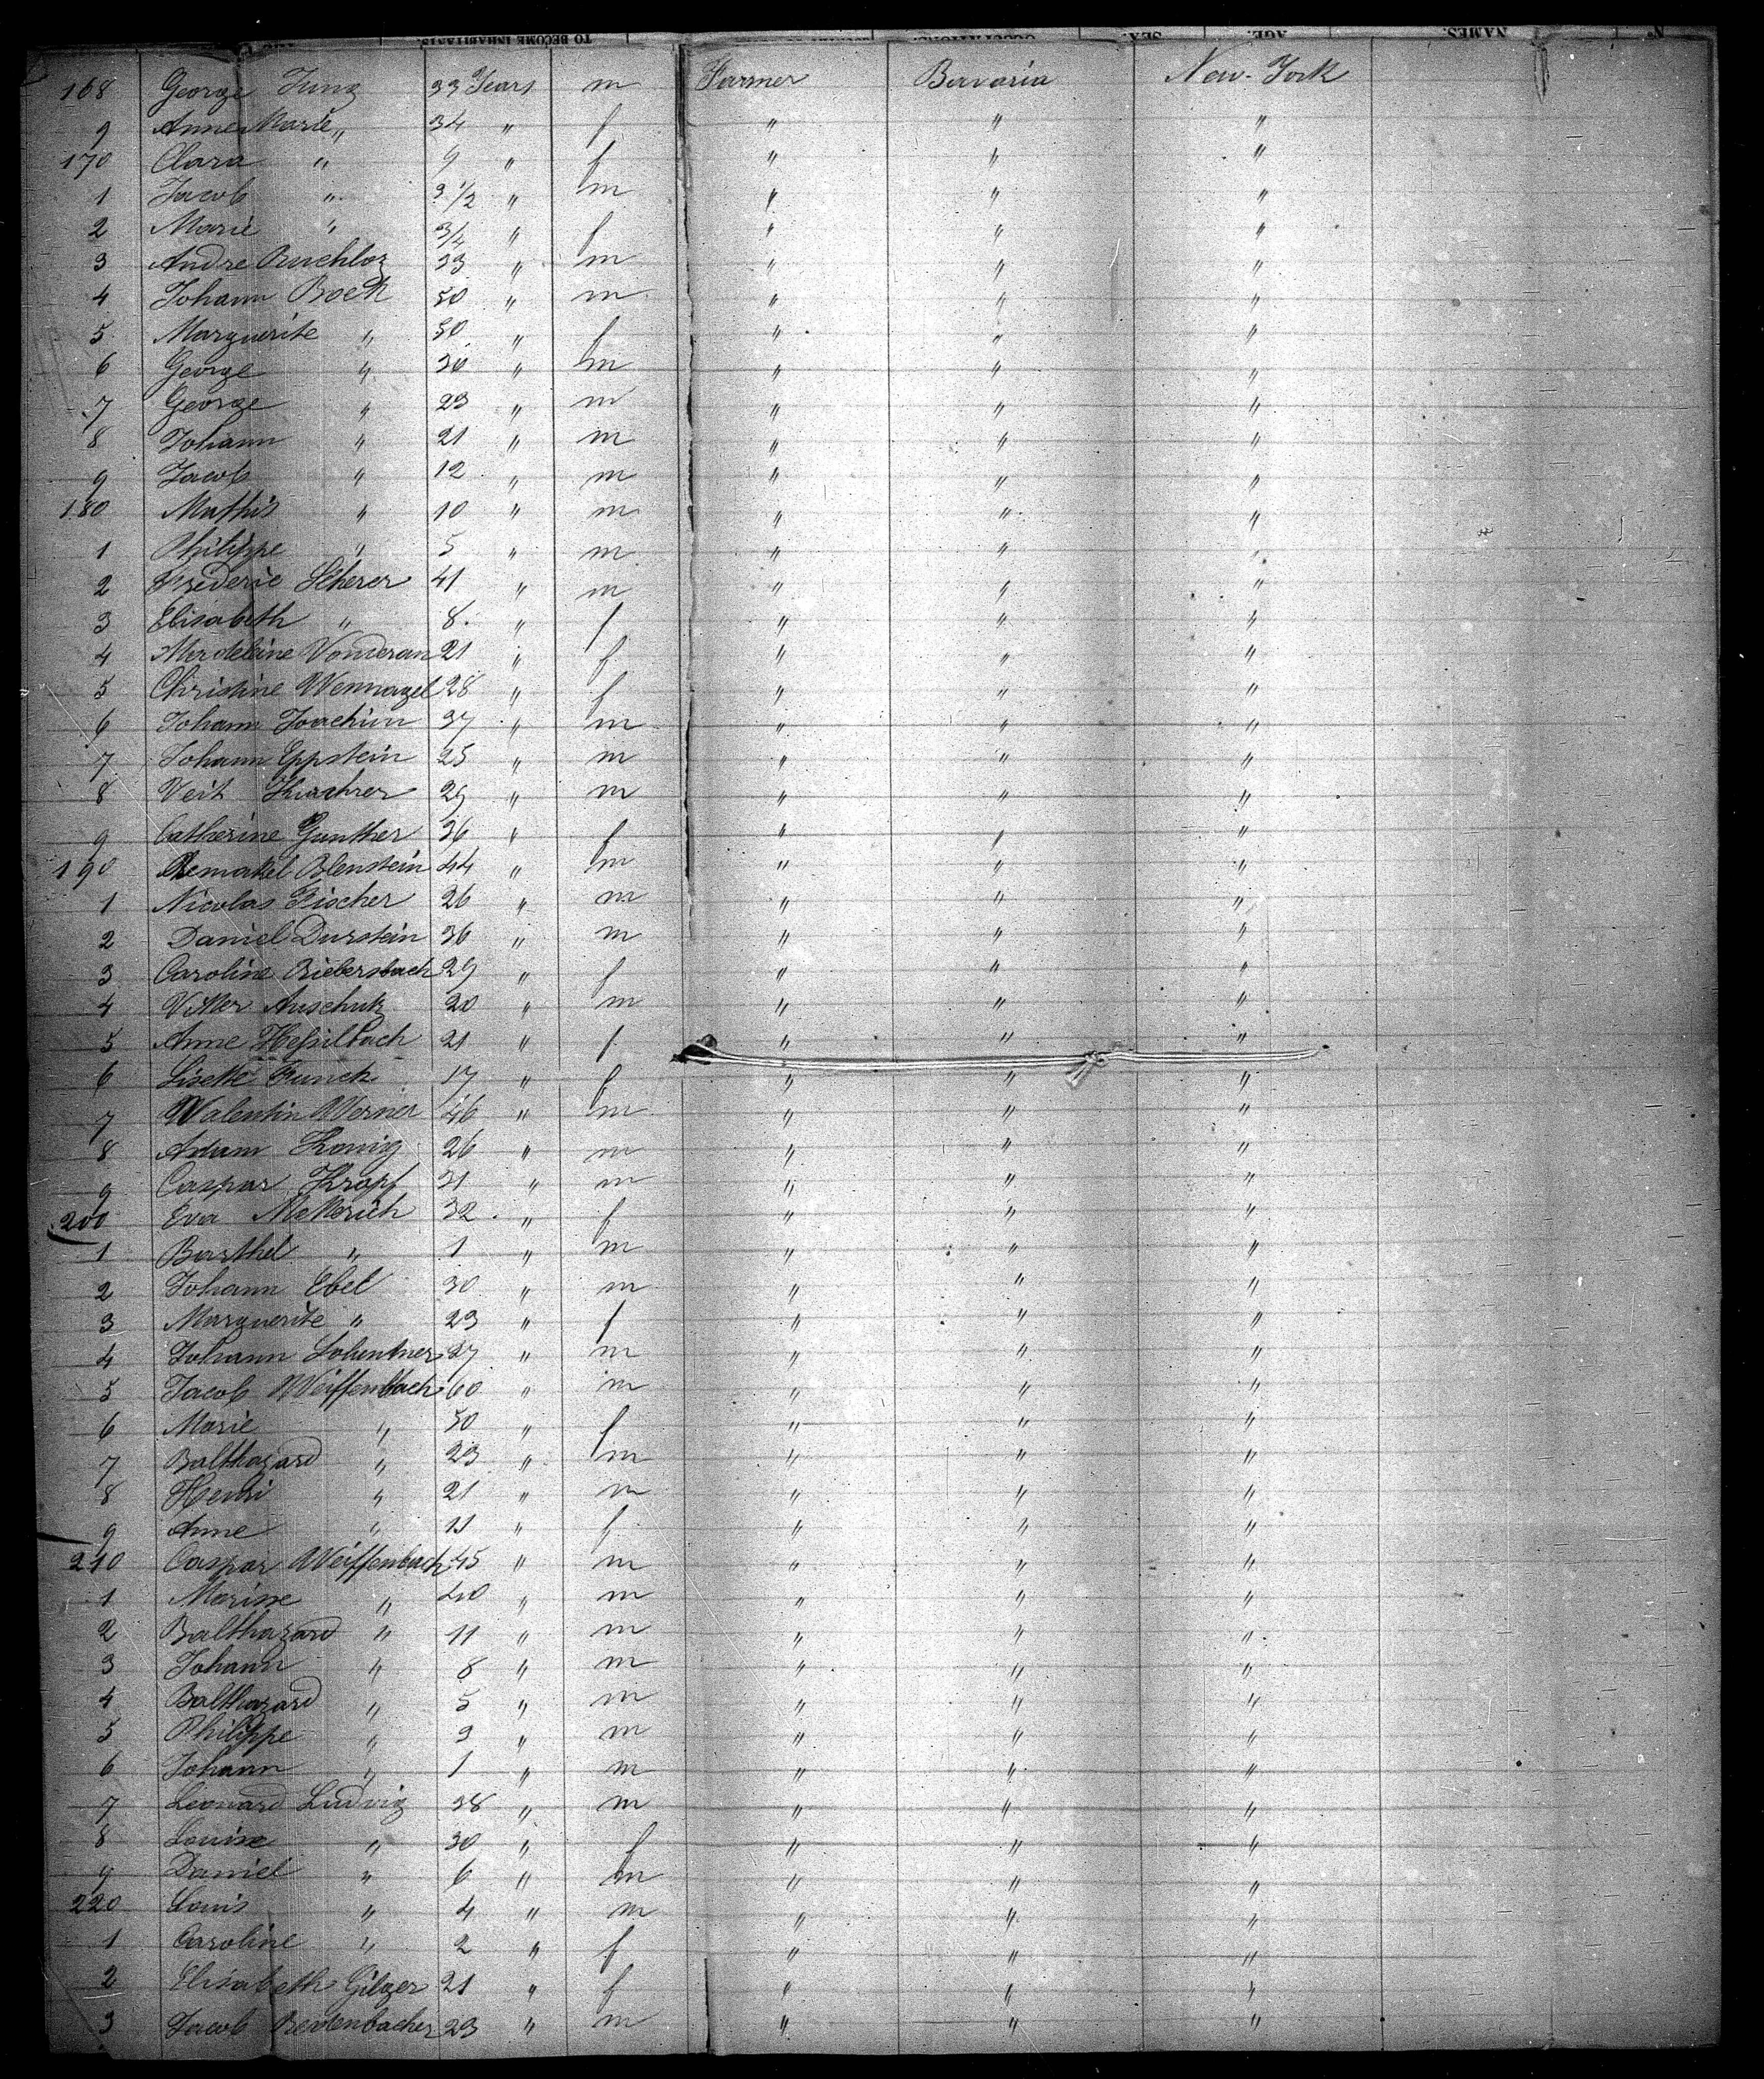 TO BECOME INHABITANTS. OCCUPATIONS. SEX. AGE. NAMES. No
168 George Jung 33 Years m Farmer Bavaria New-York
9 Anne Marie " 34 " f " " "
170 Clara " 9 " f " " "
1 Jacob " 3 1/2 " m " " "
2 Marie " 3/4 " f " " "
3 Andre 33 " m " " "
4 Johann Bock 50 " m " " "
5 Marguerite " 50 " f " " "
6 George " 30 " m " " "
7 George " 23 " m " " "
8 Johann " 21 " m " " "
9 Jacob " 12 " m " " "
180 Mathis " 10 " m " " "
1 Philippe " 5 " m " " "
2 Frederic Scherer 41 " m " " "
3 Elisabeth " 8 " f " " "
4 Madeleine Vonderan 21 " f " " "
5 Christine Wennagel 28 " f " " "
6 Johann Joachim 37 " m " " "
7 Johann Eppstein 25 " m " " "
8 Veit 29 " m " " "
9 Catherine Gunther 36 " f " " "
190 Blenstein 44 " m " " "
1 Nicolas Fischer 26 " m " " "
2 Daniel Durstein 36 " m " " "
3 Caroline Biebersbach 29 " f " " "
4 Auschutz 20 " m " " "
5 Anne Hessilbach 21 " f " " "
6 Lisette Funck 17 " f " " "
7 Valentin Werner 46 " m " " "
8 Adam Konig 26 " m " " "
9 Caspar Kropf 31 " m " " "
200 Eva Metterich 32 " f " " "
1 Barthel " 1 " m " " "
2 Johann Ebel 30 " m " " "
3 Marguerite " 23 " f " " "
4 Johann 27 " m " " "
5 Jacob Weiffenbach 60 " m " " "
6 Marie " 50 " f " " "
7 Balthazard " 23 " m " " "
8 Henri " 21 " m " " "
9 Anne " 11 " f " " "
210 Caspar Weiffenbach 45 " m " " "
1 " 40 " m " " "
2 Balthazard " 11 " m " " "
3 Johann " 8 " m " " "
4 Balthazard " 5 " m " " "
5 Philippe " 3 " m " " "
6 Johann " 1 " m " " "
7 Leonard Ludwig 38 " m " " "
8 Louise " 30 " f " " "
9 Daniel " 6 " m " " "
220 Louis " 4 " m " " "
1 Caroline " 2 " f " " "
2 Elisabeth Gilger 21 " f " " "
3 Jacob Bertenbacher 23 " m " " "